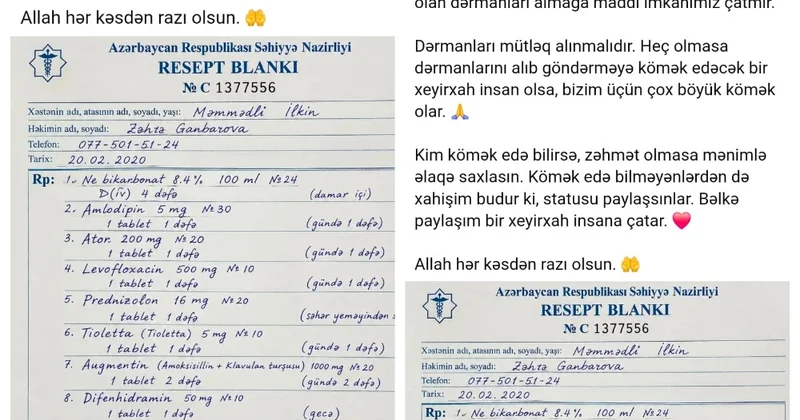 Allah hər kəsdən razı olsun. 🤲
Azərbaycan Respublikası Səhiyyə Nazirliyi
RESEPT BLANKI
№ C 1377556
Xəstənin adı, atasının adı, soyadı, yaşı: Məmmədli İlkin
Həkimin adı, soyadı: Zəhra Ganbarova
Telefon: 077-501-51-24
Tarix: 20.02.2020
Rp: 1. Ne bikarbonat 8.4% 100 ml №24
D(iv) 4 dəfə (damar içi)
2. Amlodipin 5 mg №30
1 tablet 1 dəfə (gündə 1 dəfə)
3. Ator. 200 mg №20
1 tablet 1 dəfə (gündə 1 dəfə)
4. Levofloxacin 500 mg №10
1 tablet 1 dəfə (gündə 1 dəfə)
5. Prednizolon 16 mg №20
1 tablet 1 dəfə (səhər yeməyindən s
6. Tioletta (Tioletta) 5 mg №10
1 tablet 1 dəfə (gündə 1 dəfə)
7. Augmentin (Amoksisillin + Klavulan turşusu) 1000 mg №20
1 tablet 2 dəfə (gündə 2 dəfə)
8. Difenhidramin 50 mg №10
1 tablet 1 dəfə (gecə)
olan dərmanları almağa maddi imkanımız çatmır.
Dərmanları mütləq alınmalıdır. Heç olmasa
dərmanlarını alıb göndərməyə kömək edəcək bir
xeyirxah insan olsa, bizim üçün çox böyük kömək
olar. 🙏
Kim kömək edə bilirsə, zəhmət olmasa mənimlə
əlaqə saxlasın. Kömək edə bilməyənlərdən də
xahişim budur ki, statusu paylaşsınlar. Bəlkə
paylaşım bir xeyirxah insana çatar. ❤️
Allah hər kəsdən razı olsun. 🤲
Azərbaycan Respublikası Səhiyyə Nazirliyi
RESEPT BLANKI
№ C 1377556
Xəstənin adı, atasının adı, soyadı, yaşı: Məmmədli İlkin
Həkimin adı, soyadı: Zəhra Ganbarova
Telefon: 077-501-51-24
Tarix: 20.02.2020
Rp: 1. Ne bikarbonat 8.4% 100 ml №24